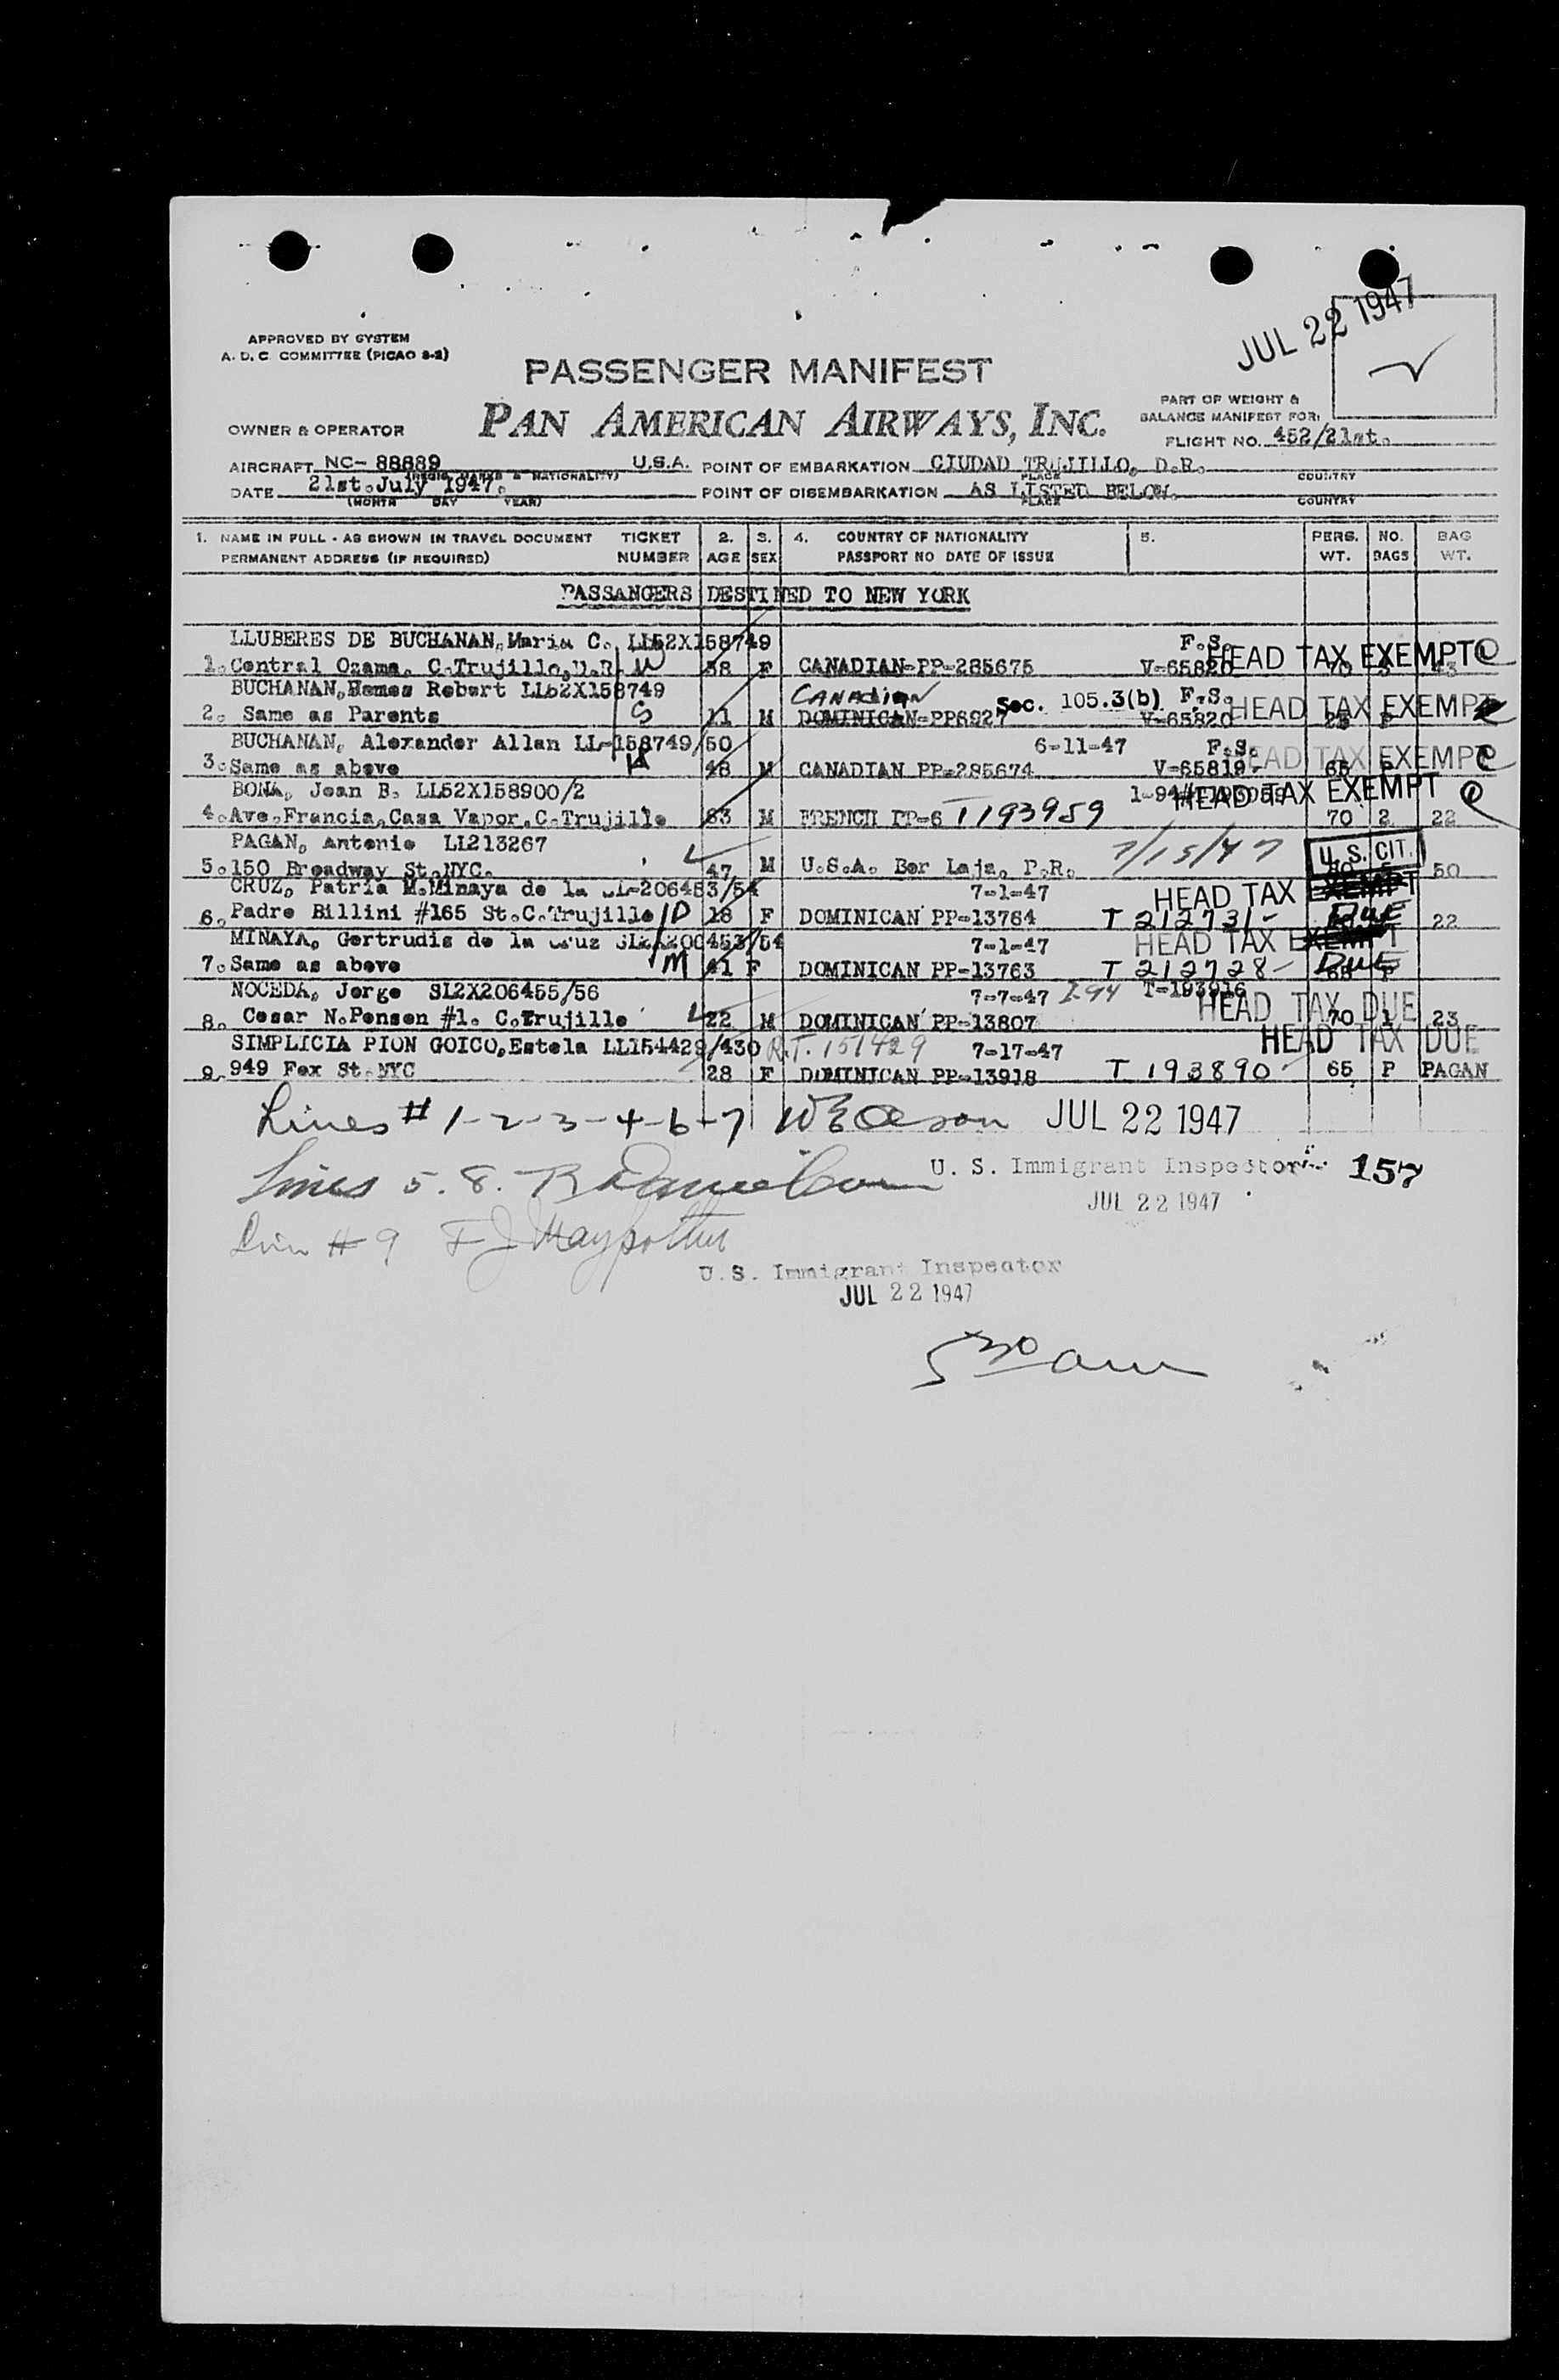 JUL 22 1947
APPROVED BY SYSTEM
A. D. C. COMMITTEE (PICAO 8-2)
PASSENGER MANIFEST
PAN AMERICAN AIRWAYS, INC.
OWNER & OPERATOR
PART OF WEIGHT &
BALANCE MANIFEST FOR:
FLIGHT NO. 452/21st.
AIRCRAFT NC- 88889 U.S.A. POINT OF EMBARKATION CIUDAD TRUJILLO, D.R.
MARKS & NATIONALITY) PLACE COUNTRY
DATE 21st.July 1947. POINT OF DISEMBARKATION AS LISTED BELOW.
(MONTH DAY YEAR) PLACE COUNTRY
1. NAME IN FULL - AS SHOWN IN TRAVEL DOCUMENT TICKET 2. 3. 4. COUNTRY OF NATIONALITY 5. PERS. NO. BAG
PERMANENT ADDRESS (IF REQUIRED) NUMBER AGE SEX PASSPORT NO DATE OF ISSUE WT. BAGS WT.
PASSANGERS DESTINED TO NEW YORK
LLUBERES DE BUCHANAN, Maria C. LL52X158749 F.S.
1. Central Ozama, C.Trujillo,D.R. M 38 F CANADIAN-PP-285675 V-65820 HEAD TAX EXEMPT 70 43
BUCHANAN, Robert LL52X158749 CANADIAN Sec. 105.3(b) F.S.
2. Same as Parents S 11 M DOMINICAN-PP6927 V-65820 HEAD TAX EXEMPT P
BUCHANAN, Alexander Allan LL-158749/50 6-11-47 F.S.
3. Same as above M 48 M CANADIAN PP-285674 V-65819- HEAD TAX EXEMPT
BONA, Jean B. LL52X158900/2 HEAD TAX EXEMPT
4. Ave.Francia,Casa Vapor,C.Trujillo 63 M FRENCH PP-6 T193959 70 2 22
PAGAN, Antonio LL213267 7/15/47 U.S. CIT.
5. 150 Broadway St.NYC. 47 M U.S.A. P.R. 50
CRUZ, Patria M.Minaya de la 206453/54 7-1-47 HEAD TAX EXEMPT
6. Padre Billini #165 St.C.Trujillo D 18 F DOMINICAN PP-13764 T 212731- DUE 22
MINAYA, Gertrudis de la Cruz 7-1-47 HEAD TAX EXEMPT
7. Same as above M 41 F DOMINICAN PP-13763 T 212728- DUE P
NOCEDA, Jorge SL2X206455/56 7-7-47 I-94 T-193916 HEAD TAX DUE
8. Cesar N.Penson #1. C.Trujillo 22 M DOMINICAN PP-13807 70 1 23
SIMPLICIA PION GOICO,Estela LL154429/430 R.T. 151429 7-17-47 HEAD TAX DUE
9. 949 Fox St.NYC 28 F DOMINICAN PP-13918 T 193890- 65 P PAGAN
Lines # 1-2-3-4-6-7 JUL 22 1947
U. S. Immigrant Inspector 157
Lines 5. 8.
JUL 22 1947
Line # 9
U.S. Immigrant Inspector
JUL 22 1947
5 30 am